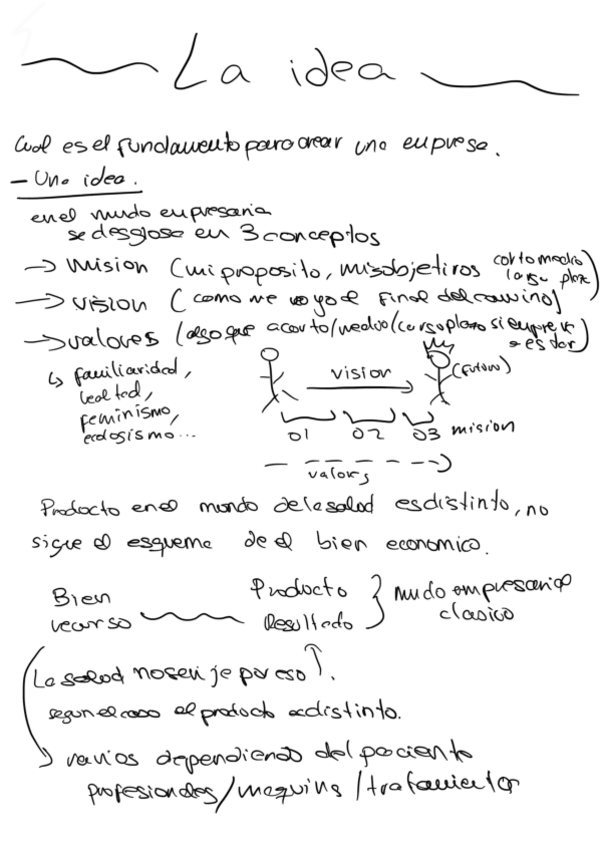 La idea
Cual es el fundamento para crear una empresa.
- Una idea.
en el mudo empresaria
se desglosa en 3 conceptos
-> Mision (mi proposito, mis objetivos corto medio
largo plazo)
-> vision (como me veo yo al final del camino)
-> valores (algo que a corto/medio/largo plazo siempre va
a estar)
↳ familiaridad,
lealtad,
feminismo,
ecologismo...
vision
(futuro)
01 02 03 mision
valores
Producto en el mundo de la salud es distinto, no
sigue el esquema de el bien economico.
Bien
recurso
Producto
Resultado
mudo empresarial
clasico
La salud no se rije por eso.
segun el caso el producto es distinto.
varios dependiendo del paciente
profesionales/maquinas/tratamientos